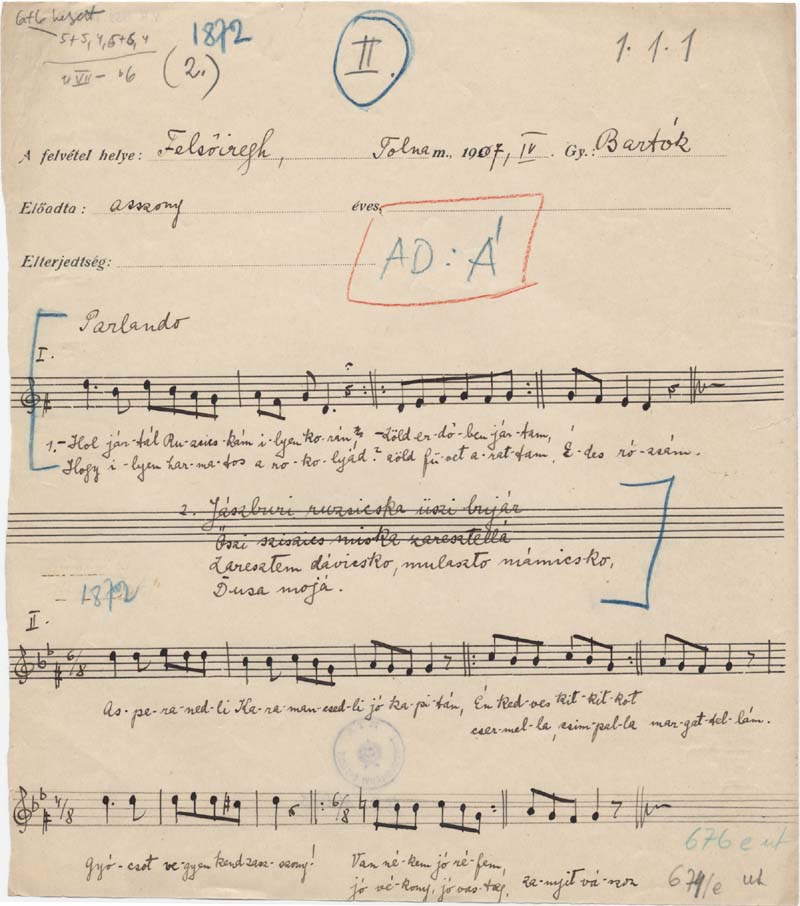 6+6 kezest
5+5, 4, 5+5, 4
VII – b6
1872
(2.)
II.
1.1.1
A felvétel helye: Felsőiregh, Tolna m., 1907, IV. Gy.: Bartók
Előadta: asszony éves,
Elterjedtség:
AD: Á
Parlando
I.
1.- Hol jár-tál Ru-zsics-kám i-lyen ko-rán? -Zöld er-dő-ben jár-tam,
Hogy i-lyen har-ma-tos a ro-ko-lyád? zöld fü-vet a-rat-tam, É-des ró-zsám.
2. Jászburi ruzsicska üszi brijár
Őszi sziszics miska zaresztellá
Zaresztem dávicsko, mulaszto mámicsko,
Dusa mojá.
1872
II.
6/8
As-pe-ra-ned-li Ka-ra-man-csed-li jó ka-pi-tán, Én ked-ves kit-kit-kot
cser-mel-la, csim-pal-la mar-gat-tel-lám.
4/8 6/8
Gyó-csot ve-gyen kend zasz-szony! Van né-kem jó ré-fem,
jó vé-kony, jó vas-tag, za-nyit vá-szon
676 e ut
671/e ut